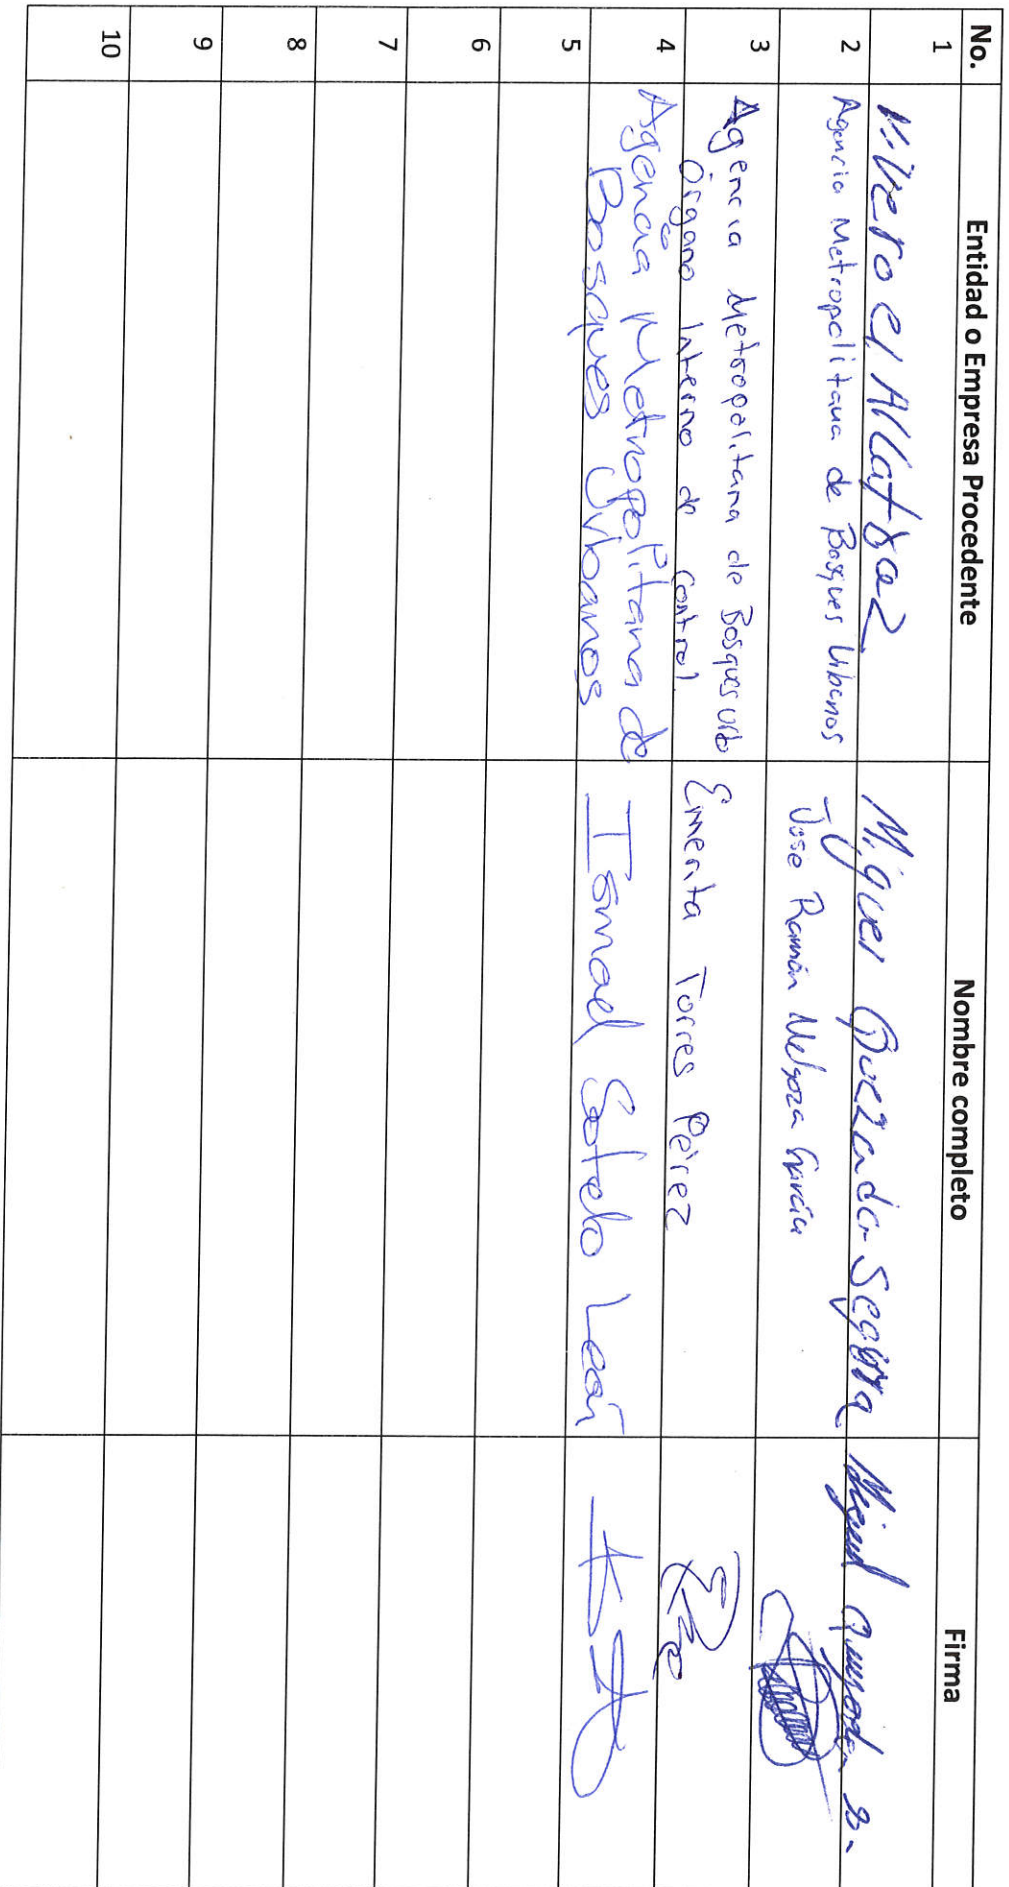 No. Entidad o Empresa Procedente Nombre completo Firma
1 Vivero el Miguel Quezada Segura Miguel
2 Agencia Metropolitana de Bosques Urbanos Jose Ramón Melgoza García
3 Agencia Metropolitana de Bosques Urb
Órgano Interno de Control. Emerita Torres Pérez
4 Agencia Metropolitana de
Bosques Urbanos Ismael Sotelo León
5
6
7
8
9
10